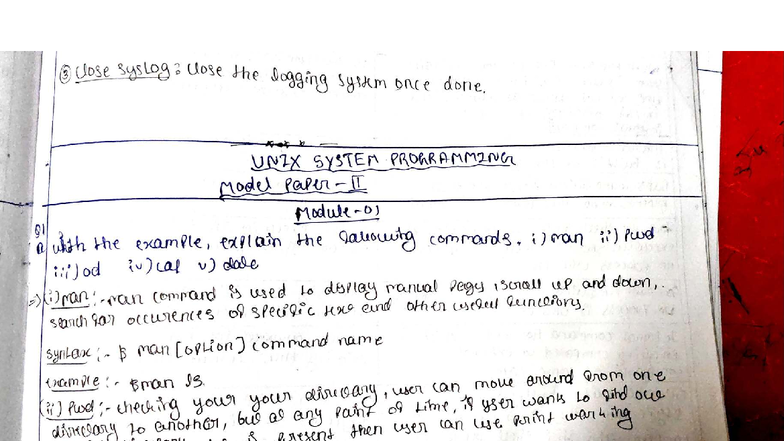 ③ Close syslog: Close the logging system once done.
UNIX SYSTEM PROGRAMMING
Model Paper-II
Module-01
Q1
a With the example, explain the following commands. i) man ii) Pwd
iii) od iv) cal v) date
=> (i) man :- man command is used to display manual pages, scroll up and down,
search for occurences of specific text and other useful functions.
syntax :- $ man [option] command name
Example :- $man ls
(ii) Pwd :- checking your your directory, user can move around from one
directory to another, but at any point of time, if user wants to find out
is present then user can use print working